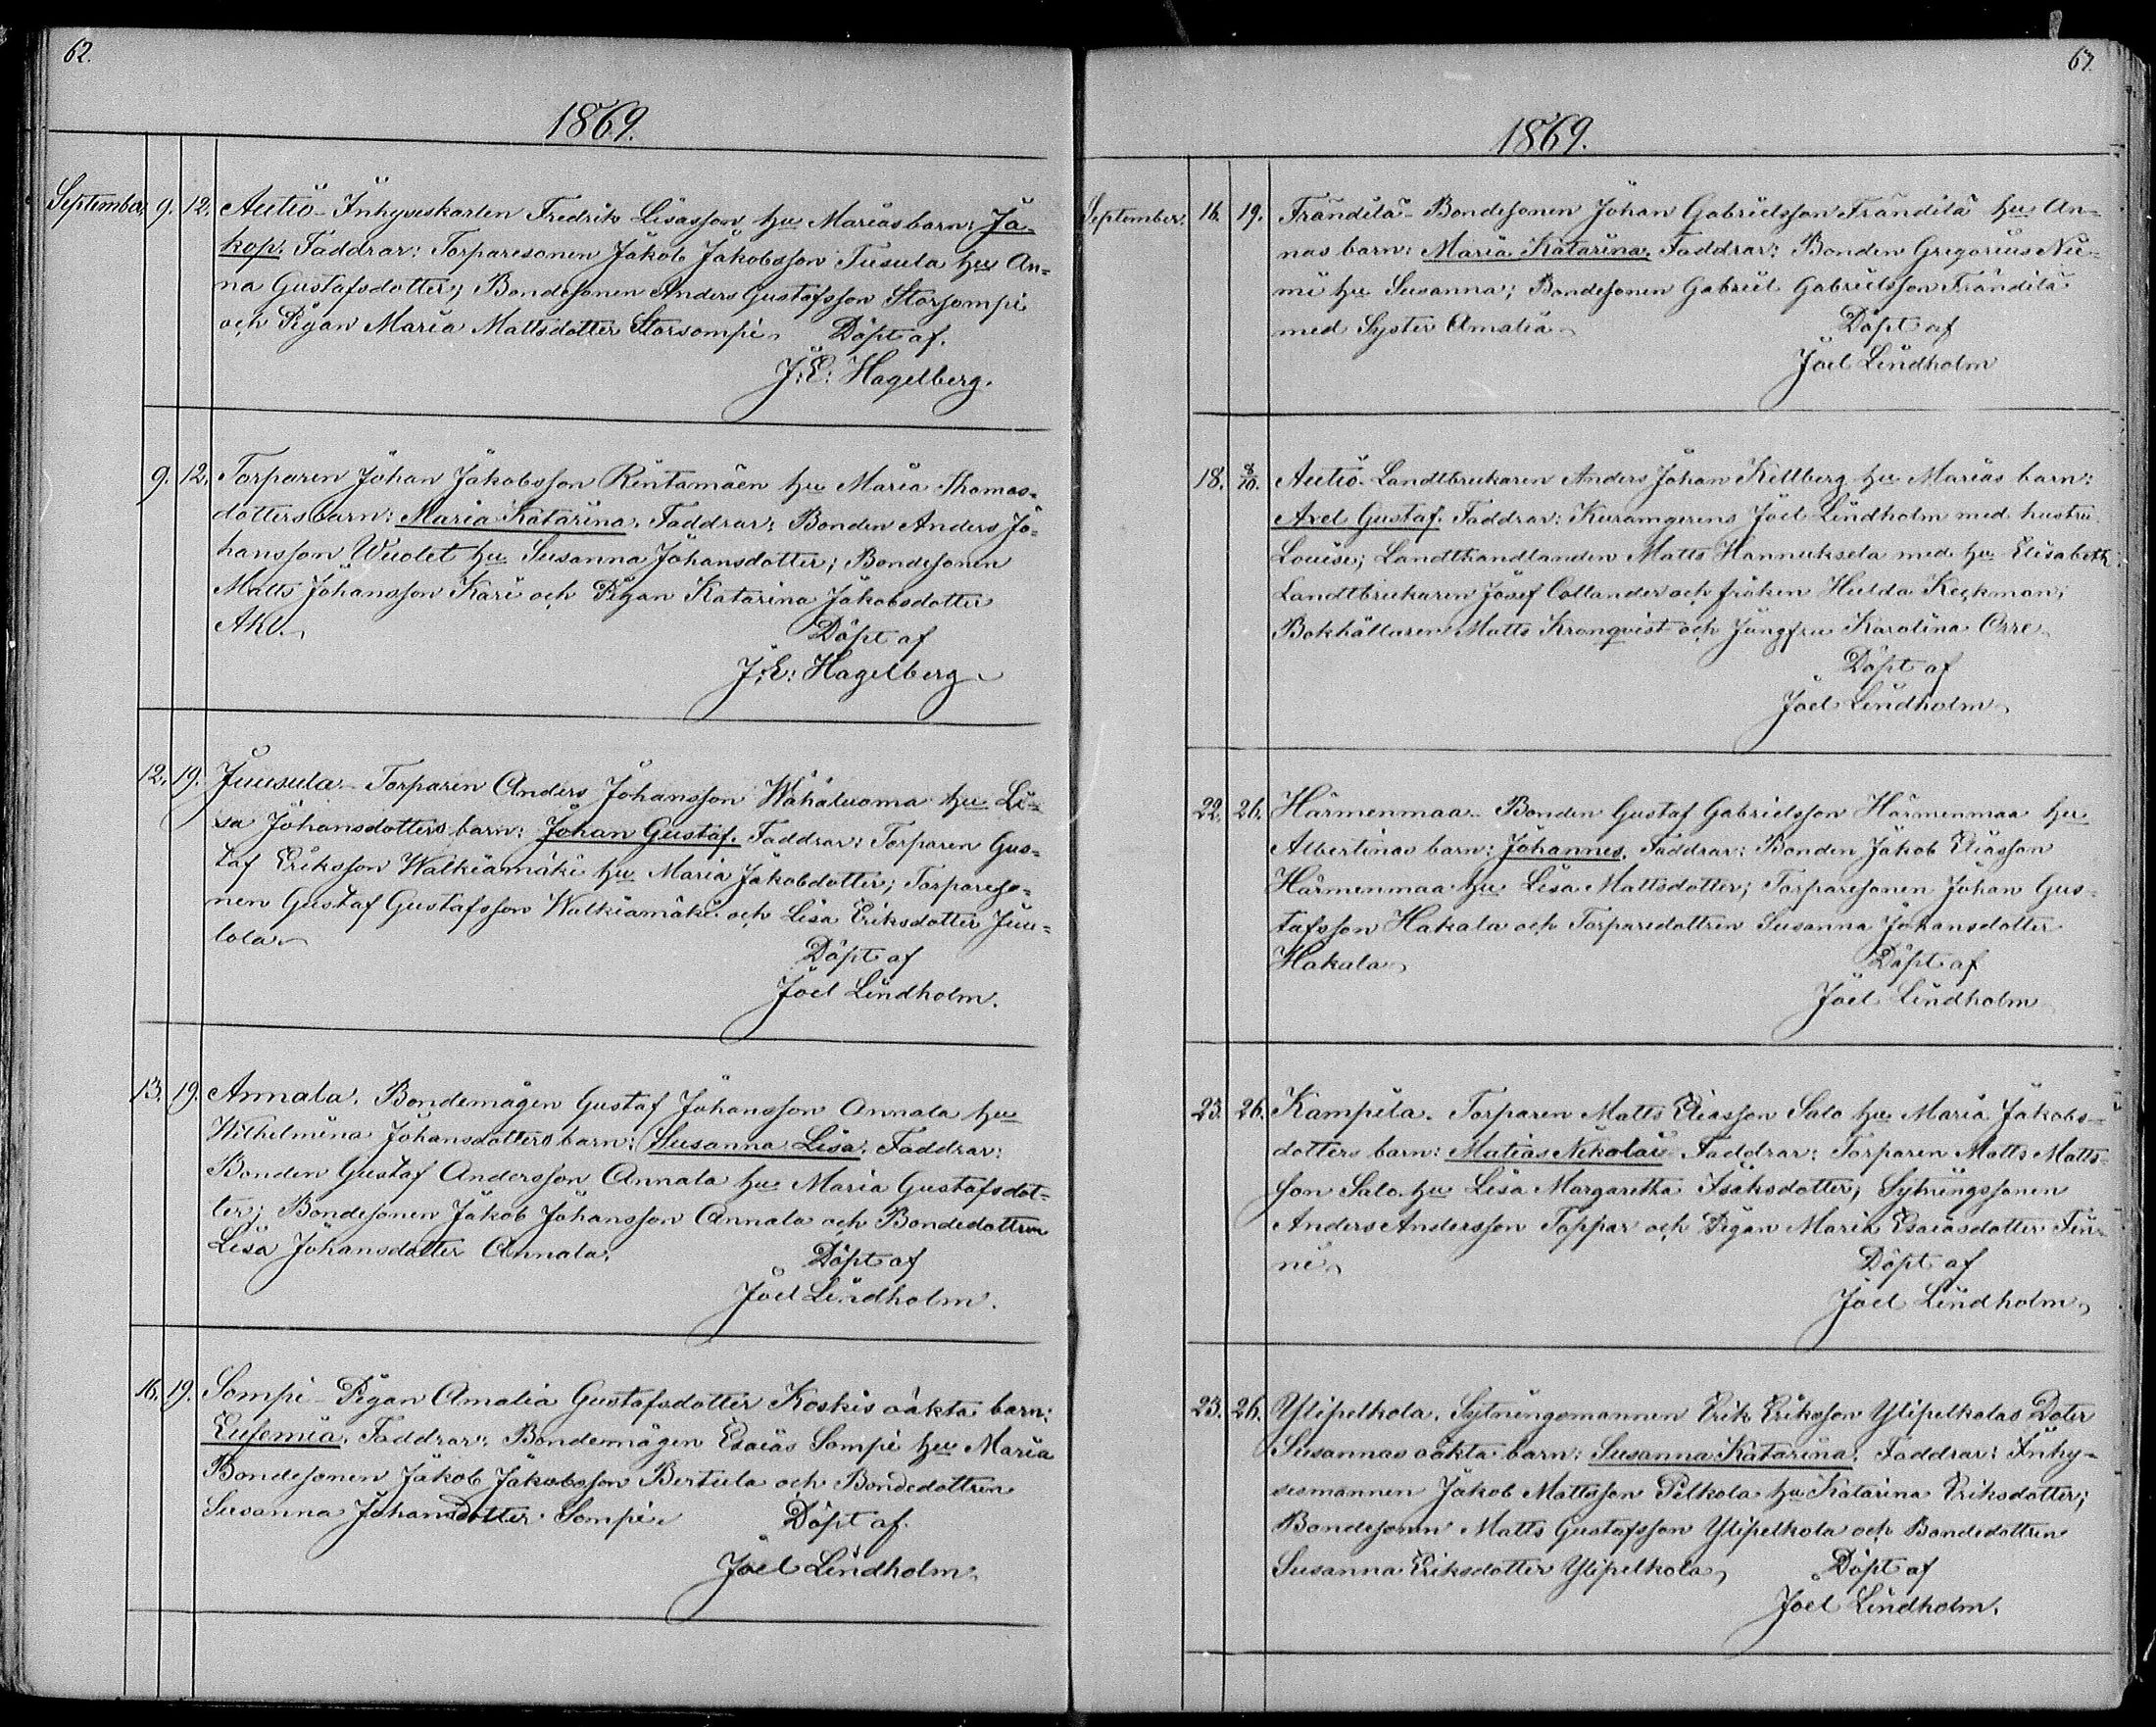 62.
1869.
September 9. 12. Autio- Inhyseskarlen Fredrik Lisasson hu Marias barn: Ja-
kop. Faddrar: Torparesonen Jakob Jakobsson Tusula hu An-
na Gustafsdotter; Bondesonen Anders Gustafsson Storsompi
och Pigan Maria Mattsdotter Storsompi. Döpt af.
J: E: Hagelberg.
9. 12. Torparen Johan Jakobsson Rintamäen hu Maria Thomas-
dotters barn: Maria Katarina. Faddrar: Bonden Anders Jo-
hansson Wuolet hu Susanna Johansdotter; Bondesonen
Matts Johansson Kari och Pigan Katarina Jakobsdotter
Akl. Döpt af
J: E: Hagelberg
12. 19. Juusula- Torparen Anders Johansson Wähäluoma hu Li-
sa Johansdotters barn: Johan Gustaf. Faddrar: Torparen Gus-
taf Eriksson Walkiamäki hu Maria Jakobdotter; Torpareso-
nen Gustaf Gustafsson Walkiamäki och Lisa Eriksdotter Juu-
lola. Döpt af
Joel Lindholm.
13. 19. Annala. Bondemågen Gustaf Johansson Annala hu
Wilhelmina Johansdotters barn: Susanna Lisa. Faddrar:
Bonden Gustaf Andersson Annala hu Maria Gustafsdot-
ter; Bondesonen Jakob Johansson Annala och Bondedottren
Lisa Johansdotter Annala. Döpt af
Joel Lindholm.
16. 19. Sompi- Pigan Amalia Gustafsdotter Koskis oäkta barn:
Eufemia. Faddrar: Bondemågen Esaias Sompi hu Maria
Bondesonen Jakob Jakobsson Bertula och Bondedottren
Susanna Johansdotter Sompi. Döpt af.
Joel Lindholm.
63.
1869.
September. 16. 19. Frändilä- Bondesonen Johan Gabrielsson Frändilä hu An-
nas barn: Maria Katarina. Faddrar: Bonden Gregorius Nie-
mi hu Susanna; Bondesonen Gabriel Gabrielsson Frändilä
med Syster Amalia. Döpt af
Joel Lindholm
18. 8/10. Autio- Landtbrukaren Anders Johan Kellberg hu Marias barn:
Axel Gustaf. Faddrar: Kuramgerens Joel Lindholm med hustru
Louise; Landthandlanden Matts Hannuksela med hu Elisabeth;
Landtbrukaren Josef Collander och fröken Hulda Keckman;
Bokhållaren Matts Kronqvist och Jungfru Karolina Orre
Döpt af
Joel Lindholm
22. 26. Härmenmaa- Bonden Gustaf Gabrielsson Härmenmaa hu
Albertinas barn: Johannes. Faddrar: Bonden Jakob Eliasson
Härmenmaa hu Lisa Mattsdotter; Torparesonen Johan Gus-
tafsson Hakala och Torparedottren Susanna Johansdotter
Hakala Döpt af
Joel Lindholm
23. 26. Kampila. Torparen Matts Eliasson Salo hu Maria Jakobs-
dotters barn: Matias Nikolai. Faddrar: Torparen Matts Matts-
son Salo hu Lisa Margaretha Isaksdotter; Sytningssonen
Anders Andersson Toppar och Pigan Maria Esaiasdotter Fin-
ne Döpt af
Joel Lindholm
23. 26. Ylipelkola. Sytningsmannen Erik Eriksson Ylipelkolas Doter
Susannas oäkta barn: Susanna Katarina. Faddrar: Inhy-
sesmannen Jakob Mattsson Pelkola hu Katarina Eriksdotter;
Bondesonen Matts Gustafsson Ylipelkola och Bondedottren
Susanna Eriksdotter Ylipelkola Döpt af
Joel Lindholm.